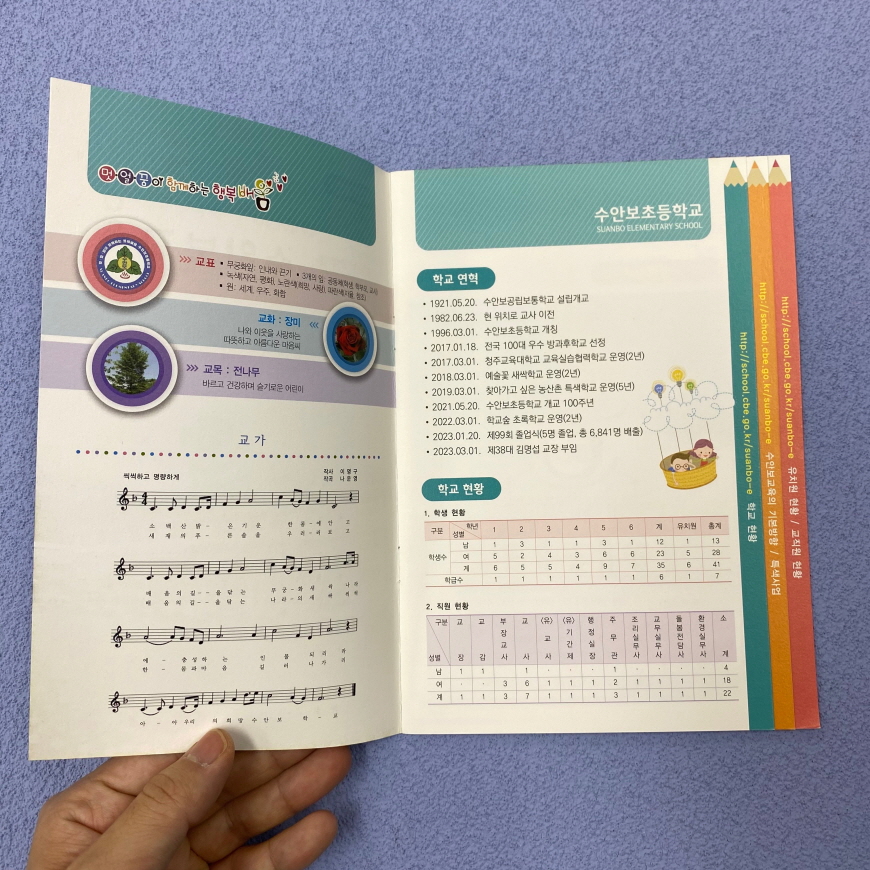 멋·얼·꿈이 함께하는 행복 배움
교표
• 무궁화잎: 인내와 끈기 • 3개의 잎: 공동체(학생, 학부모, 교사)
• 녹색(자연, 평화), 노란색(희망, 사랑), 파란색(자율, 창조)
• 원: 세계, 우주, 화합
교화 : 장미
나와 이웃을 사랑하는
따뜻하고 아름다운 마음씨
교목 : 전나무
바르고 건강하며 슬기로운 어린이
교 가
씩씩하고 명랑하게
작사 이영구
작곡 나운영
소 백 산 맑 - 은 기 운 한 몸 - 에 안 고
새 재 의 푸 - 른 숲 을 우 러 - 러 보 고
배 움 의 길 - - 을 닦 는 무 궁 - 화 새 싹
배 움 의 길 - - 을 닦 는 나 라 - 의 새 싹
충 성 하 는 인 물 되 리 라
한 - 몸 과 마 음 길 러 나 가 리
아 - 아 우리 의 희 망 수 안 보 학 - 교
수안보초등학교
SUANBO ELEMENTARY SCHOOL
학교 연혁
• 1921.05.20. 수안보공립보통학교 설립개교
• 1982.06.23. 현 위치로 교사 이전
• 1996.03.01. 수안보초등학교 개칭
• 2017.01.18. 전국 100대 우수 방과후학교 선정
• 2017.03.01. 청주교육대학교 교육실습협력학교 운영(2년)
• 2018.03.01. 예술꽃 새싹학교 운영(2년)
• 2019.03.01. 찾아가고 싶은 농산촌 특색학교 운영(5년)
• 2021.05.20. 수안보초등학교 개교 100주년
• 2022.03.01. 학교숲 초록학교 운영(2년)
• 2023.01.20. 제99회 졸업식(5명 졸업, 총 6,841명 배출)
• 2023.03.01. 제38대 김명섭 교장 부임
학교 현황
1. 학생 현황
구분 학년 성별 1 2 3 4 5 6 계 유치원 총계
학생수 남 1 3 1 1 3 1 12 1 13
여 5 2 4 3 6 6 23 5 28
계 6 5 5 4 9 7 35 6 41
학급수 1 1 1 1 1 1 6 1 7
2. 직원 현황
구분 성별 교장 교감 부장교사 교사 (유)교사 (유)기간제 행정실장 주무관 조리실무사 교무실무사 돌봄전담사 환경실무사 소계
남 1 1 · 1 · · · 1 · · · · 4
여 · · 3 6 1 1 1 2 1 1 1 1 18
계 1 1 3 7 1 1 1 3 1 1 1 1 22
http://school.cbe.go.kr/suanbo-e 학교 현황
http://school.cbe.go.kr/suanbo-e 수안보교육의 기본방향 / 특색사업
http://school.cbe.go.kr/suanbo-e 유치원 현황 / 교직원 현황